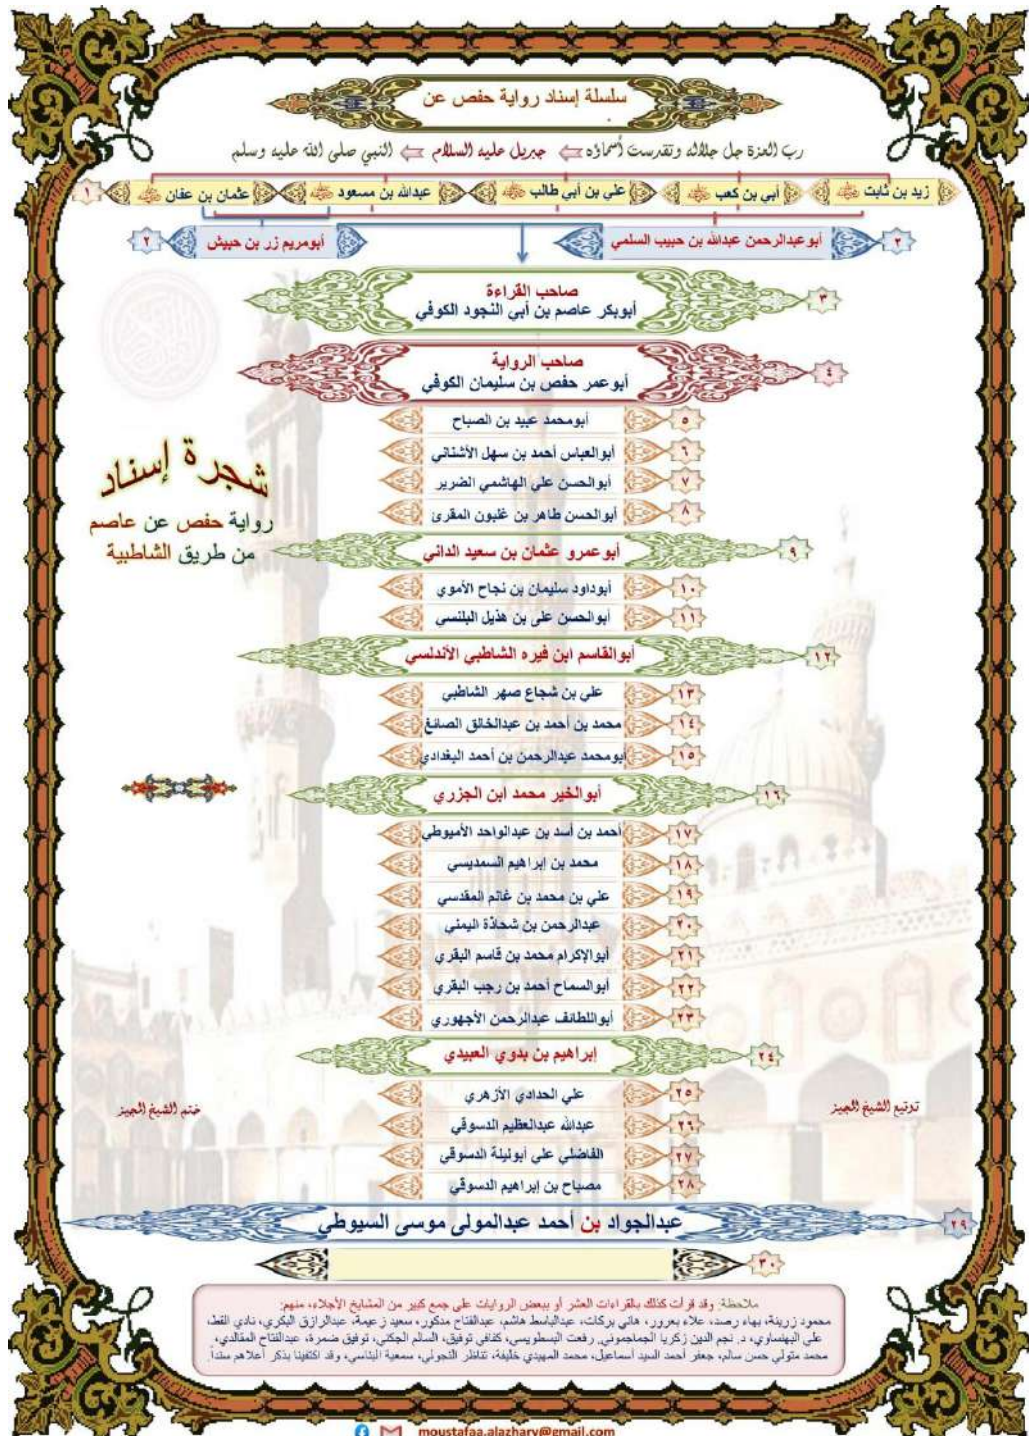 سلسلة إسناد رواية حفص عن
رب العزة جل جلاله وتقدست أسماؤه ⇐ جبريل عليه السلام ⇐ النبي صلى الله عليه وسلم
زيد بن ثابت أبي بن كعب علي بن أبي طالب عبدالله بن مسعود عثمان بن عفان ١
٢ أبوعبدالرحمن عبدالله بن حبيب السلمي أبومريم زر بن حبيش ٢
٣ صاحب القراءة
أبوبكر عاصم بن أبي النجود الكوفي
٤ صاحب الرواية
أبوعمر حفص بن سليمان الكوفي
٥ أبومحمد عبيد بن الصباح
٦ أبوالعباس أحمد بن سهل الأشناني
٧ أبوالحسن علي الهاشمي الضرير
٨ أبوالحسن طاهر بن غلبون المقرئ
شجرة إسناد
رواية حفص عن عاصم
من طريق الشاطبية
٩ أبوعمرو عثمان بن سعيد الداني
١٠ أبوداود سليمان بن نجاح الأموي
١١ أبوالحسن علي بن هذيل البلنسي
١٢ أبوالقاسم ابن فيره الشاطبي الأندلسي
١٣ علي بن شجاع صهر الشاطبي
١٤ محمد بن أحمد بن عبدالخالق الصائغ
١٥ أبومحمد عبدالرحمن بن أحمد البغدادي
١٦ أبوالخير محمد ابن الجزري
١٧ أحمد بن أسد بن عبدالواحد الأميوطي
١٨ محمد بن إبراهيم السمديسي
١٩ علي بن محمد بن غانم المقدسي
٢٠ عبدالرحمن بن شحاذة اليمني
٢١ أبوالإكرام محمد بن قاسم البقري
٢٢ أبوالسماح أحمد بن رجب البقري
٢٣ أبواللطائف عبدالرحمن الأجهوري
٢٤ إبراهيم بن بدوي العبيدي
٢٥ علي الحدادي الأزهري
٢٦ عبدالله عبدالعظيم الدسوقي
٢٧ الفاضلي علي أبوليلة الدسوقي
٢٨ مصباح بن إبراهيم الدسوقي
توقيع الشيخ المجيز
ختم الشيخ المجيز
٢٩ عبدالجواد بن أحمد عبدالمولى موسى السيوطي
٣٠
ملاحظة: وقد قرأت كذلك بالقراءات العشر أو ببعض الروايات على جمع كبير من المشايخ الأجلاء، منهم:
محمود زرينة، بهاء رصد، علاء بعرور، هاني بركات، عبدالباسط هاشم، عبدالفتاح مدكور، سعيد زعيمة، عبدالرازق البكري، نادي القط،
علي البهنساوي، د. نجم الدين زكريا الجماجموني، رفعت البسطويسي، كفافي توفيق، السالم الجكني، توفيق ضمرة، عبدالفتاح
محمد متولي حسن سالم، جعفر أحمد السيد أسماعيل، محمد المهيدي خليفة، تناظر النجولي، سمعية وقد اكتفينا بذكر أعلاهم سنداً.
moustafaa.alazhary@gmail.com